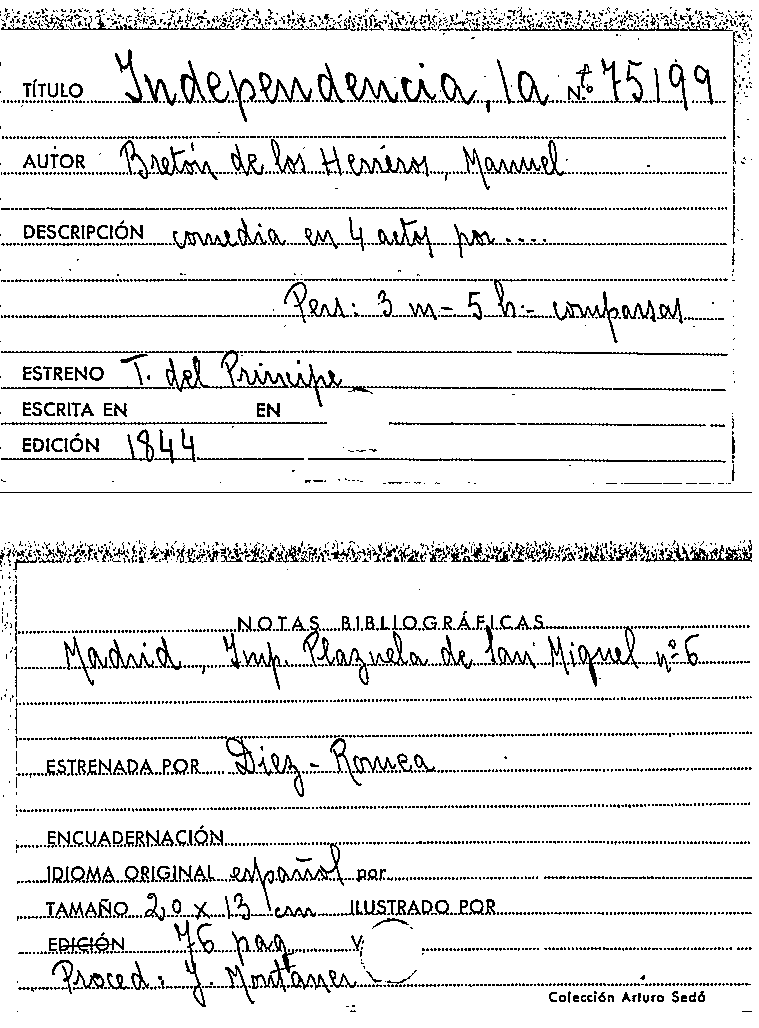 TÍTULO Independencia, la Nº 75199
AUTOR Bretón de los Herreros, Manuel
DESCRIPCIÓN comedia en 4 actos por....
Pers: 3 m - 5 h - comparsas
ESTRENO T. del Principe
ESCRITA EN EN
EDICIÓN 1844
NOTAS BIBLIOGRÁFICAS
Madrid, Imp. Plazuela de San Miguel nº 6
ESTRENADA POR Diez - Romea
ENCUADERNACIÓN
IDIOMA ORIGINAL español por
TAMAÑO 20 x 13 cm ILUSTRADO POR
EDICIÓN 76 pag V
Proced: J. Montaner
Colección Arturo Sedó